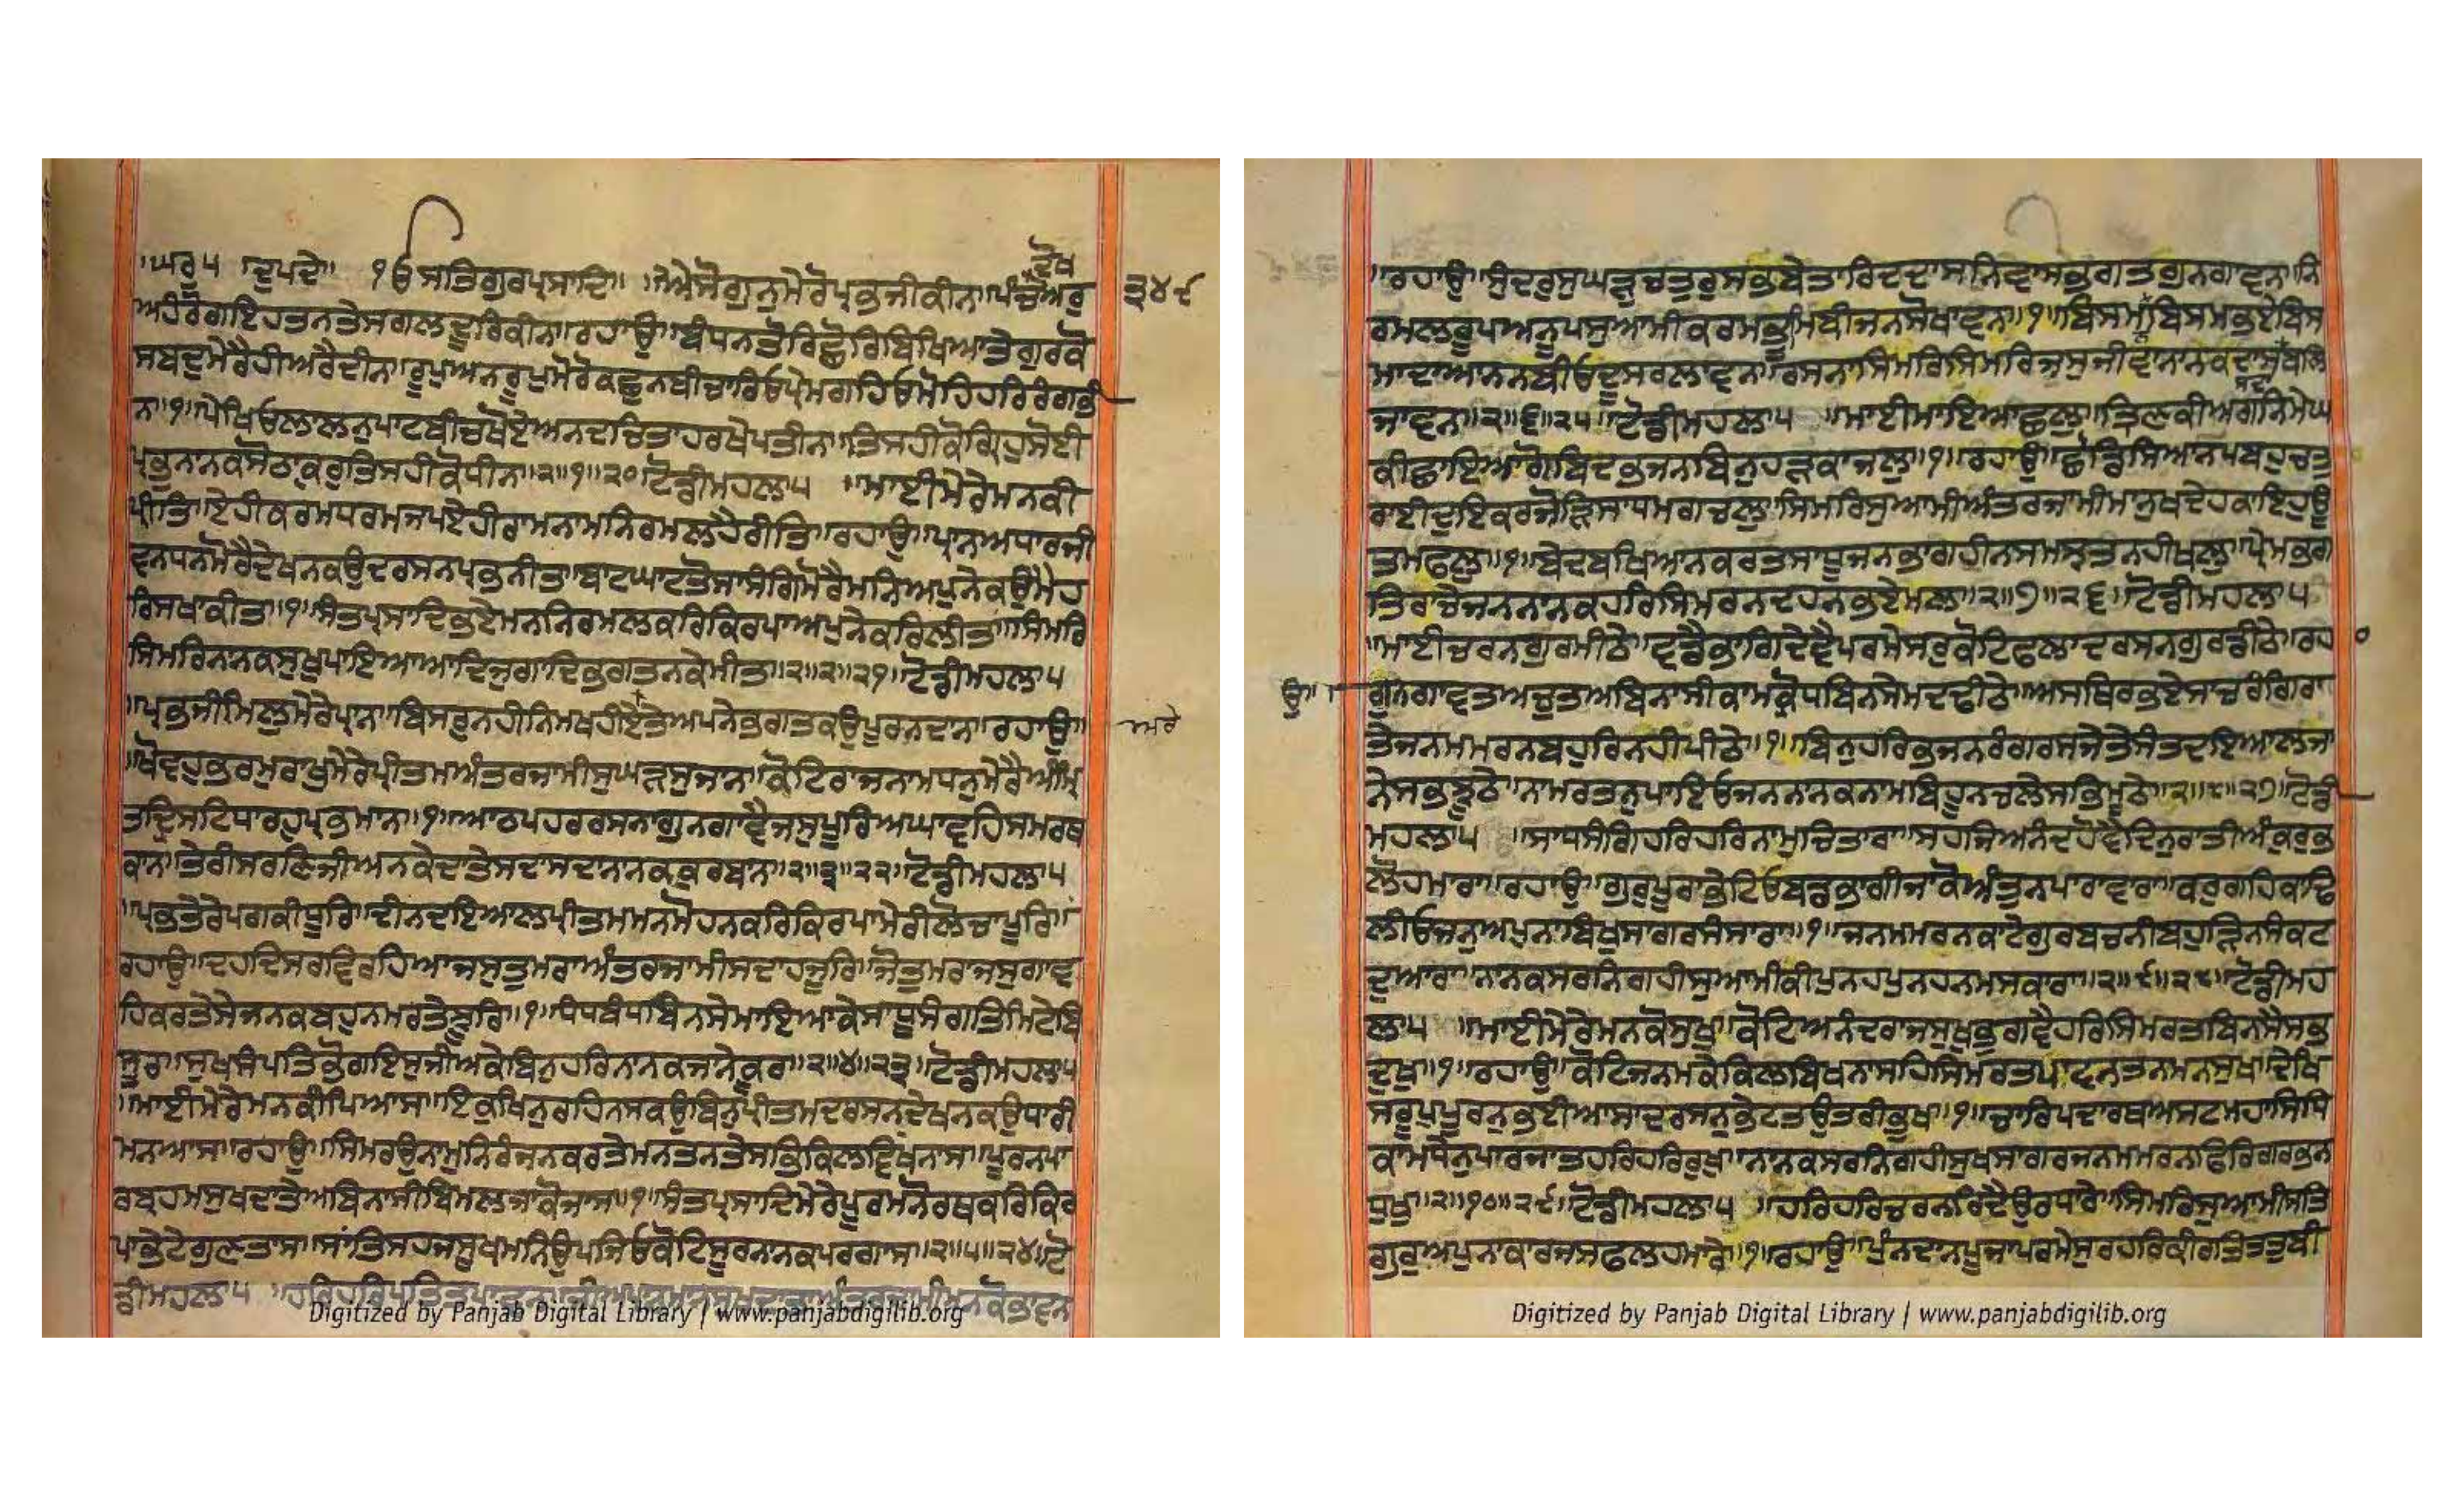 ॥ਘਰੁ੫ ਦੁਪਦੇ॥ ੴਸਤਿਗੁਰਪ੍ਰਸਾਦਿ॥ ॥ਐਸੋਗੁਨੁਮੇਰੋਪ੍ਰਭਜੀਕੀਨਾ॥ਪੰਚਦੋਖਅਰੁ
੩੪੯
ਅਹੰਰੋਗਇਹਤਨਤੇਸਗਲਦੂਰਿਕੀਨਾ॥ਰਹਾਉ॥ਬੰਧਨਤੋਰਿਛੋਰਿਬਿਖਿਆਤੇਗੁਰਕੋ
ਸਬਦੁਮੇਰੈਹੀਅਰੈਦੀਨਾ॥ਰੂਪੁਅਨਰੂਪੁਮੋਰੋਕਛੁਨਬੀਚਾਰਿਓਪ੍ਰੇਮਗਹਿਓਮੋਹਿਹਰਿਰੰਗਭੀ
ਨਾ॥੧॥ਪੇਖਿਓਲਾਲਨੁਪਾਟਬੀਚਖੋਏਅਨਦਚਿਤਾਹਰਖੇਪਤੀਨਾ॥ਤਿਸਹੀਕੋਗ੍ਰਿਹੁਸੋਈ
ਪ੍ਰਭੁਨਾਨਕਸੋਠਾਕੁਰੁਤਿਸਹੀਕੋਧੀਨਾ॥੨॥੧॥੨੦॥ਟੋਡੀਮਹਲਾ੫ ॥ਮਾਈਮੇਰੇਮਨਕੀ
ਪ੍ਰੀਤਿ॥ਏਹੀਕਰਮਧਰਮਜਪਏਹੀਰਾਮਨਾਮਨਿਰਮਲਹੈਰੀਤਿ॥ਰਹਾਉ॥ਪ੍ਰਾਨਅਧਾਰਜੀ
ਵਨਧਨਮੋਰੈਦੇਖਨਕਉਦਰਸਨਪ੍ਰਭਨੀਤਿ॥ਬਾਟਘਾਟਤੋਸਾਸੰਗਿਮੋਰੈਮਨਅਪੁਨੇਕਉਮੈਹ
ਰਿਸਖਾਕੀਤਾ॥੧॥ਸੰਤਪ੍ਰਸਾਦਿਭਏਮਨਨਿਰਮਲਕਰਿਕਿਰਪਾਅਪੁਨੇਕਰਿਲੀਤਾ॥ਸਿਮਰਿ
ਸਿਮਰਿਨਾਨਕਸੁਖੁਪਾਇਆਆਦਿਜੁਗਾਦਿਭਗਤਨਕੇਮੀਤਾ॥੨॥੨॥੨੧॥ਟੋਡੀਮਹਲਾ੫
॥ਪ੍ਰਭਜੀਮਿਲੁਮੇਰੇਪ੍ਰਾਨ॥ਬਿਸਰੁਨਹੀਨਿਮਖਹੀਏਤੇਅਪਨੇਭਗਤਕਉਪੂਰਨਦਾਨ॥ਰਹਾਉ॥
ਅਰੇ
॥ਖੋਵਹੁਭਰਮੁਰਾਖੁਮੇਰੇਪ੍ਰੀਤਮਅੰਤਰਜਾਮੀਸੁਘੜਸੁਜਾਨ॥ਕੋਟਿਰਾਜਨਾਮਧਨੁਮੇਰੈਅੰਮ੍ਰਿ
ਤਦ੍ਰਿਸਟਿਧਾਰਹੁਪ੍ਰਭਮਾਨ॥੧॥ਆਠਪਹਰਰਸਨਾਗੁਨਗਾਵੈਜਸੁਪੂਰਿਅਘਾਵਹਿਸਮਰਥ
ਕਾਨ॥ਤੇਰੀਸਰਣਿਜੀਅਨਕੇਦਾਤੇਸਦਾਸਦਾਨਾਨਕਕੁਰਬਾਨ॥੨॥੩॥੨੨॥ਟੋਡੀਮਹਲਾ੫
॥ਪ੍ਰਭਤੇਰੇਪਗਕੀਧੂਰਿ॥ਦੀਨਦਇਆਲਪ੍ਰੀਤਮਮਨਮੋਹਨਕਰਿਕਿਰਪਾਮੇਰੀਲੋਚਾਪੂਰਿ॥
ਰਹਾਉ॥ਦਹਦਿਸਰਵਿਰਹਿਆਜਸੁਤੁਮਰਾਅੰਤਰਜਾਮੀਸਦਾਹਜੂਰਿ॥ਜੋਤੁਮਰਾਜਸੁਗਾਵ
ਹਿਕਰਤੇਸੇਜਨਕਬਹੁਨਮਰਤੇਝੂਰਿ॥੧॥ਧੰਧਬੰਧਬਿਨਸੇਮਾਇਆਕੇਸਾਧੂਸੰਗਤਿਮਿਟੇਬਿ
ਸੂਰ॥ਸੁਖਸੰਪਤਿਭੋਗਇਸੁਜੀਅਕੇਬਿਨੁਹਰਿਨਾਨਕਜਾਨੇਕੂਰ॥੨॥੪॥੨੩॥ਟੋਡੀਮਹਲਾ੫
॥ਮਾਈਮੇਰੇਮਨਕੀਪਿਆਸ॥ਇਕੁਖਿਨੁਰਹਿਨਸਕਉਬਿਨੁਪ੍ਰੀਤਮਦਰਸਨਦੇਖਨਕਉਧਾਰੀ
ਮਨਆਸ॥ਰਹਾਉ॥ਸਿਮਰਉਨਾਮੁਨਿਰੰਜਨਕਰਤੇਮਨਤਨਤੇਸਭਿਕਿਲਵਿਖਨਾਸ॥ਪੂਰਨਪਾ
ਰਬ੍ਰਹਮਸੁਖਦਾਤੇਅਬਿਨਾਸੀਬਿਮਲਜਾਕੋਜਾਸ॥੧॥ਸੰਤਪ੍ਰਸਾਦਿਮੇਰੇਪੂਰਮਨੋਰਥਕਰਿਕਿਰ
ਪਾਭੇਟੇਗੁਣਤਾਸ॥ਸਾਂਤਿਸਹਜਸੂਖਮਨਿਉਪਜਿਓਕੋਟਿਸੂਰਨਾਨਕਪਰਗਾਸ॥੨॥੫॥੨੪॥ਟੋ
ਡੀਮਹਲਾ੫ ॥ਹਰਿਹਰਿਪਤਿਤਪਾਵਨ॥
Digitized by Panjab Digital Library | www.panjabdigilib.org
॥ਰਹਾਉ॥ਸੁੰਦਰੁਸੁਘੜੁਚਤੁਰੁਸਭਬੇਤਾਰਿਦਦਾਸਨਿਵਾਸਭਗਤਗੁਨਗਾਵਨ॥ਨਿ
ਰਮਲਰੂਪਅਨੂਪਸੁਆਮੀਕਰਮਭੂਮਿਬੀਜਨਸੋਖਾਵਨ॥੧॥ਬਿਸਮਨਬਿਸਮਭਏਬਿਸ
ਮਾਦਾਆਨਨਬੀਓਦੂਸਰਲਾਵਨ॥ਰਸਨਾਸਿਮਰਿਸਿਮਰਿਜਸੁਜੀਵਾਨਾਨਕਦਾਸਬਲਿ
ਜਾਵਨ॥੨॥੬॥੨੫॥ਟੋਡੀਮਹਲਾ੫ ॥ਮਾਈਮਾਇਆਛਲੁ॥ਤ੍ਰਿਣਕੀਅਗਨਿਮੇਘ
ਕੀਛਾਇਆਗੋਬਿਦਭਜਨਬਿਨੁਹੜਕਾਜਲੁ॥੧॥ਰਹਾਉ॥ਛੋਡਿਸਿਆਨਪਬਹੁਚਤੁ
ਰਾਈਦੁਇਕਰਜੋੜਿਸਾਧਮਗਚਲੁ॥ਸਿਮਰਿਸੁਆਮੀਅੰਤਰਜਾਮੀਮਾਨੁਖਦੇਹਕਾਇਹੁਊ
ਤਮਫਲੁ॥੧॥ਬੇਦਬਖਿਆਨਕਰਤਸਾਧੂਜਨਭਾਗਹੀਨਸਮਝਤਨਹੀਖਲੁ॥ਪ੍ਰੇਮਭਗ
ਤਿਰਾਚੇਜਨਨਾਨਕਹਰਿਸਿਮਰਨਦਹਨਭਏਮਲ॥੨॥੭॥੨੬॥ਟੋਡੀਮਹਲਾ੫
॥ਮਾਈਚਰਨਗੁਰਮੀਠੇ॥ਵਡੈਭਾਗਿਦੇਵੈਪਰਮੇਸਰੁਕੋਟਿਫਲਾਦਰਸਨਗੁਰਡੀਠੇ॥ਰਹਾ
ਉ॥ ਗੁਨਗਾਵਤਅਚੁਤਅਬਿਨਾਸੀਕਾਮਕ੍ਰੋਧਬਿਨਸੇਮਦਢੀਠੇ॥ਅਸਥਿਰਭਏਸਾਚਰੰਗਿਰਾ
ਤੇਜਨਮਮਰਨਬਹੁਰਿਨਹੀਪੀਠੇ॥੧॥ਬਿਨੁਹਰਿਭਜਨਰੰਗਰਸਜੇਤੇਸੰਤਦਇਆਲਜਾ
ਨੇਸਭਝੂਠੇ॥ਨਾਮਰਤਨੁਪਾਇਓਜਨਨਾਨਕਨਾਮਬਿਹੂਨਚਲੇਸਭਿਮੂਠੇ॥੨॥੮॥੨੭॥ਟੋਡੀ
ਮਹਲਾ੫ ॥ਸਾਧਸੰਗਿਹਰਿਹਰਿਨਾਮੁਚਿਤਾਰਾ॥ਸਹਜਿਅਨੰਦਹੋਵੈਦਿਨੁਰਾਤੀਅੰਕੁਰੁਭ
ਲੋਹਮਾਰਾ॥ਰਹਾਉ॥ਗੁਰੁਪੂਰਾਭੇਟਿਓਬਡਭਾਗੀਜਾਕੋਅੰਤੁਨਪਾਰਾਵਾਰਾ॥ਕਰੁਗਹਿਕਾਢਿ
ਲੀਓਜਨੁਅਪੁਨਾਬਿਖੁਸਾਗਰਸੰਸਾਰਾ॥੧॥ਜਨਮਮਰਨਕਾਟੇਗੁਰਬਚਨੀਬਹੁੜਿਨਸੰਕਟ
ਦੁਆਰਾ॥ਨਾਨਕਸਰਨਿਗਹੀਸੁਆਮੀਕੀਪੁਨਹਪੁਨਹਨਮਸਕਾਰਾ॥੨॥੯॥੨੮॥ਟੋਡੀਮਹ
ਲਾ੫ ॥ਮਾਈਮੇਰੇਮਨਕੋਸੁਖੁ॥ਕੋਟਿਅਨੰਦਰਾਜਸੁਖੁਭੁਗਵੈਹਰਿਸਿਮਰਤਬਿਨਸੈਸਭ
ਦੁਖੁ॥੧॥ਰਹਾਉ॥ਕੋਟਿਜਨਮਕੇਕਿਲਬਿਖਨਾਸਹਿਸਿਮਰਤਪਾਵਨਤਨਮਨਸੁਖ॥ਦੇਖਿ
ਸਰੂਪੁਪੂਰਨੁਭਈਆਸਾਦਰਸਨੁਭੇਟਤਉਤਰੀਭੁਖ॥੧॥ਚਾਰਿਪਦਾਰਥਅਸਟਮਹਾਸਿਧਿ
ਕਾਮਧੇਨੁਪਾਰਜਾਤਹਰਿਹਰਿਰੁਖੁ॥ਨਾਨਕਸਰਨਿਗਹੀਸੁਖਸਾਗਰਜਨਮਮਰਨਫਿਰਿਗਰਭਨ
ਧੁਖੁ॥੨॥੧੦॥੨੯॥ਟੋਡੀਮਹਲਾ੫ ॥ਹਰਿਹਰਿਚਰਨਰਿਦੈਉਰਧਾਰੇ॥ਸਿਮਰਿਸੁਆਮੀਸਤਿ
ਗੁਰੁਅਪੁਨਾਕਾਰਜਸਫਲਹਮਾਰੇ॥੧॥ਰਹਾਉ॥ਪੁੰਨਦਾਨਪੂਜਾਪਰਮੇਸੁਰਹਰਿਕੀਰਤਿਤਤੁਬੀ
Digitized by Panjab Digital Library | www.panjabdigilib.org